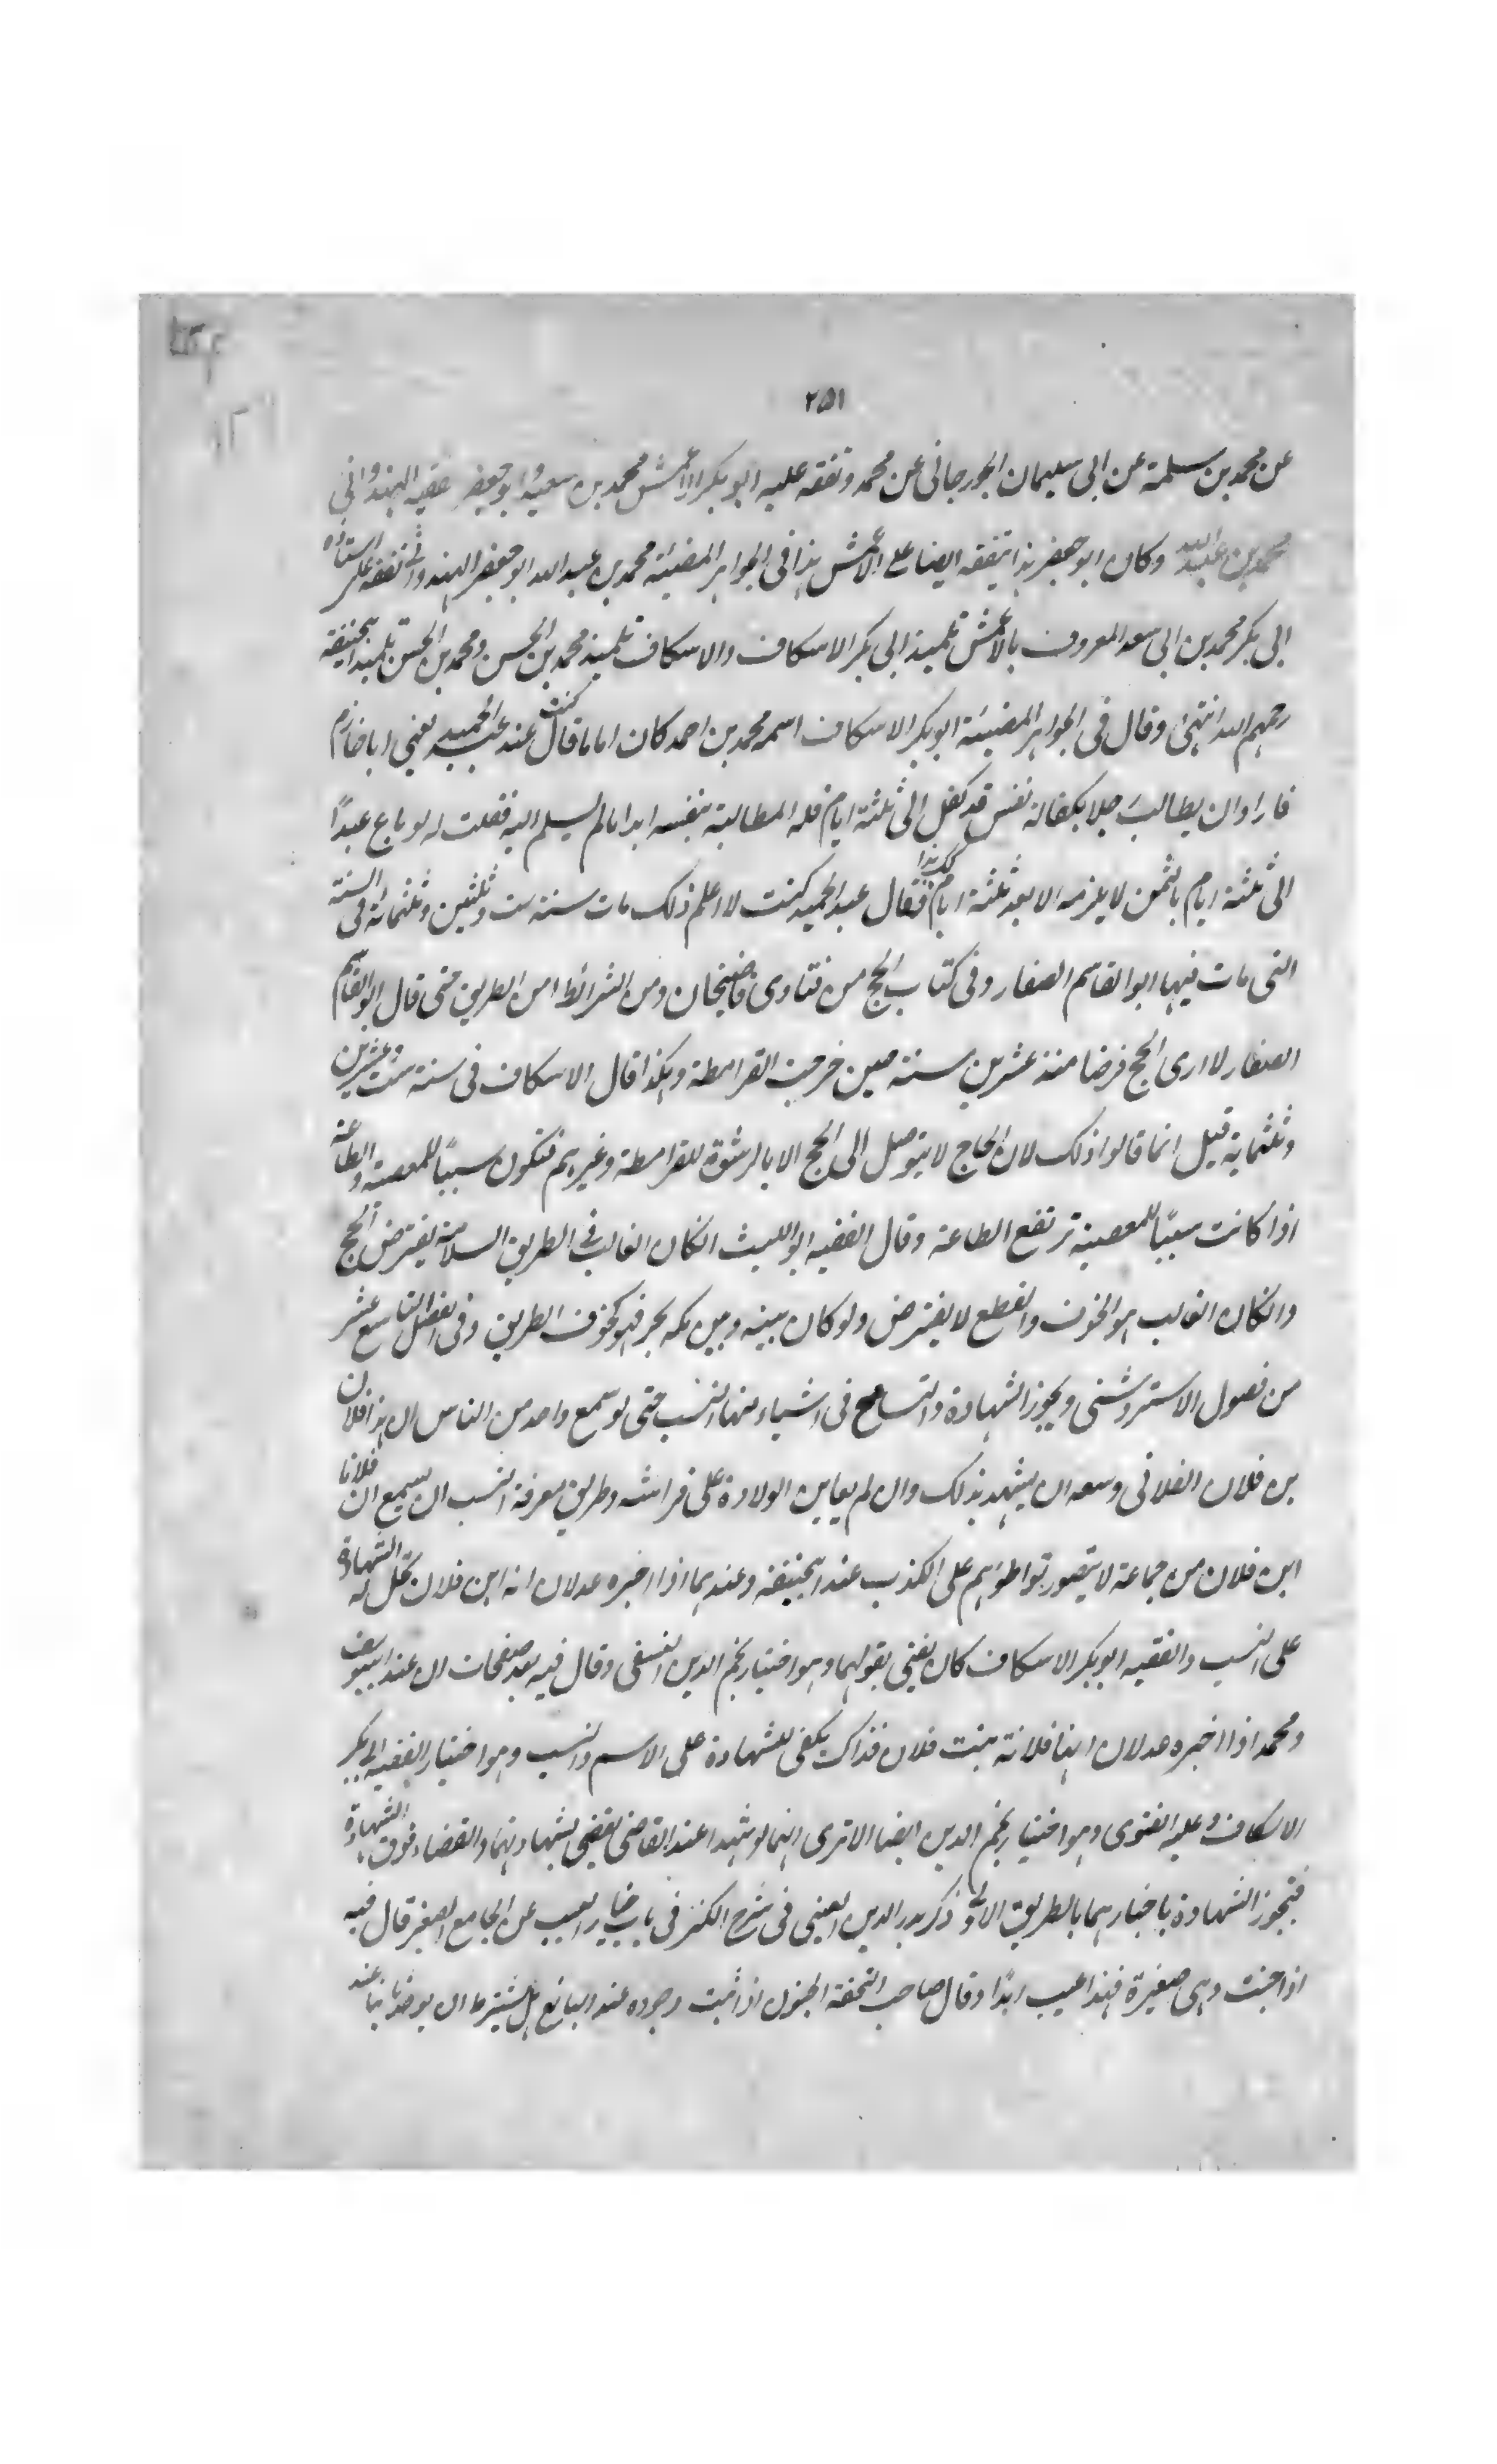 ٢٥١
عن محمد بن سلمة عن ابى سليمان الجورجانى عن محمد وتفقه عليه ابو بكر الاعمش محمد بن سعيد وابو جعفر فقيه الهندوانى
محمد بن عبد الله وكان ابو جعفر هذا يتفقه ايضا على الاعمش هذا فى الجواهر المضيئة محمد بن عبد الله ابو جعفر الهندوانى تفقه على استاده
ابى بكر محمد بن ابى سعد المعروف بالاعمش تلميذ ابى بكر الاسكاف والاسكاف تلميذ محمد بن الحسن ومحمد بن الحسن تلميذ ابيحنيفة
رحمهم الله انتهى وقال فى الجواهر المضيئة ابو بكر الاسكاف اسمه محمد بن احمد كان اماما قال كنت عند عبد الحميد يعنى ابا خازم
فاراد ان يطالب رجلا بكفالة نفس قد كفل الى ثلثة ايام فله المطالبة بنفسه ابدا مالم يسلم اليه فقلت له لو باع عبدًا
الى ثلثة ايام بالثمن لا يلزمه الا بعد ثلثة ايام فكذا هذا فقال عبد الحميد كنت لا اعلم ذلك مات سنة ست وثلثين وثلثمائة فى السنة
التى مات فيها ابو القاسم الصفار وفى كتاب الحج من فتاوى قاضيخان ومن الشرائط امن الطريق حتى قال ابو القاسم
الصفار لا ارى الحج فرضا منذ عشرين سنة حين خرجت القرامطة وهكذا قال الاسكاف فى سنة ست وعشرين
وثلثماية قيل انما قالوا ذلك لان الحاج لا يتوصل الى الحج الا بالرشوة للقرامطة وغيرهم فتكون سببًا للمعصية والطاعة
اذا كانت سببًا للمعصية ترتفع الطاعة وقال الفقيه ابو الليث انكان الغالب فى الطريق السلامة يفترض الحج
وانكان الغالب هو الخوف والقطع لا يفترض ولو كان بينه وبين مكه بحر فهو كخوف الطريق وفى الفصل التاسع عشر
من فصول الاستروشنى ويجوز الشهادة والتسامح فى اشياء منها النسب حتى لو سمع واحد من الناس ان هذا فلان
بن فلان الفلانى وسعه ان يشهد بذلك وان لم يعاين الولادة على فراشه وطريق معرفة النسب ان يسمع ان فلانا
ابن فلان من جماعة لا يتصور تواطؤهم على الكذب عند ابيحنيفة وعندهما اذا اخبره عدلان انه ابن فلان تحل له الشهادة
على النسب والفقيه ابو بكر الاسكاف كان يفتى بقولهما وهو اختيار نجم الدين النسفى وقال فيه بعد صفحات ان عند ابيوسف
ومحمد اذا اخبره عدلان انها فلانة بنت فلان فذاك يكفى للشهادة على الاسم والنسب وهو اختيار الفقيه ابى بكر
الاسكاف وعليه الفتوى وهو اختيار نجم الدين ايضا الا ترى انهما لو شهدا عند القاضى يقضى بشهادتهما والقضاء فوق الشهادة
فتجوز الشهادة باخبارهما بالطريق الاولى ذكر بدر الدين العينى فى شرح الكنز فى باب خيار العيب عن الجامع الصغير قال فيه
اذا جنت وهى صغيرة فهذا عيب ابدًا وقال صاحب التحفة الجنون اذا ثبت وجوده عند البائع هل يشترط ان يوجد ثانيا عند